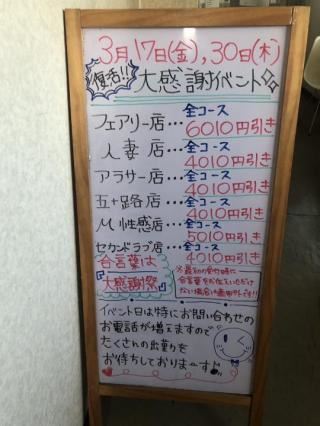 3月17日(金),30日(木)
復活!! 大感謝イベント
フェアリー店… 全コース 6010円引き
人妻店… 全コース 4010円引き
アラサー店… 全コース 4010円引き
五十路店… 全コース 4010円引き
M性感店… 全コース 5010円引き
セカンドラブ店… 全コース 4010円引き
合言葉は
『大感謝祭』
※最初の受付時に
合言葉をお伝えいただけ
ない場合は適用外です!!
・イベント日は特にお問い合わせの
お電話が増えますので
たくさんの出勤を
お待ちしておりまーす♪